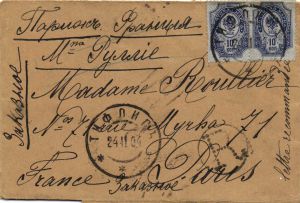 Парижъ Франція
Mme Руллiе
Madame Roullier
No 7 rue Myrha 71
France Paris
Заказное
Заказное
lettre recommandée
ТИФЛИС
24 II 04
10
10